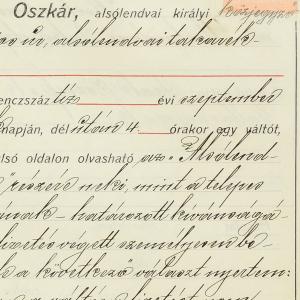 Oszkár, alsólendvai királyi közjegyző
úr, alsólendvai takarék-
enczszáz tíz évi szeptember
napján, dél után 4 órakor egy váltót,
lsó oldalon olvasható az "Alsólend-
részére neki, mint a telepes
határozott kívánságá-
végett személyesen be-
a következő választ nyertem: